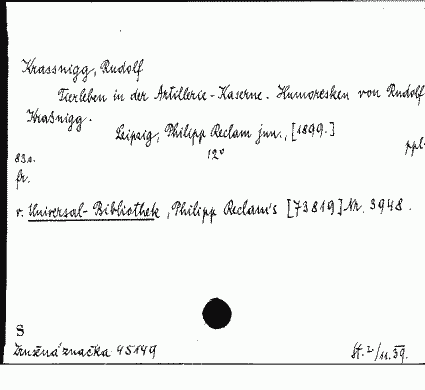 Krassnigg, Rudolf
Tierleben in der Artillerie-Kaserne. Humoresken von Rudolf
Kraßnigg.
Leipzig, Philipp Reclam jun., [1899.]
12° ppl.
83 s.
fr.
v. Universal-Bibliothek, Philipp Reclam's [73819] Nr. 3948.
S
značka 45149
St. 2/11.39.